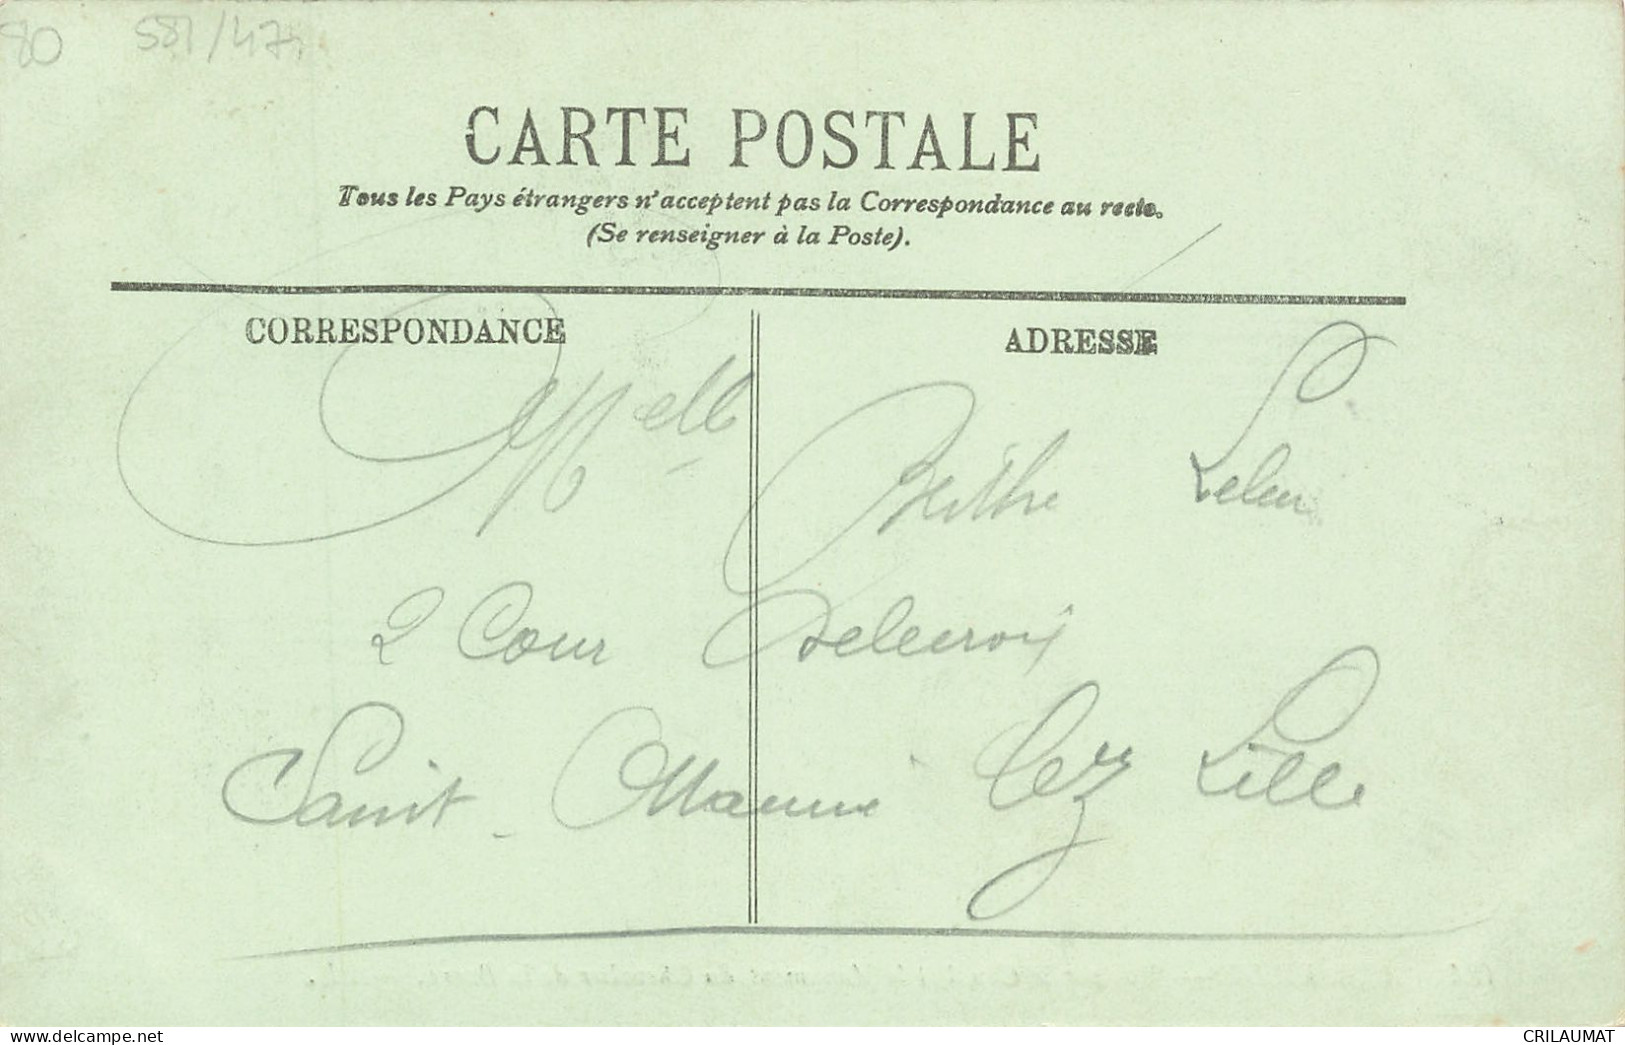 80 581/474
CARTE POSTALE
Tous les Pays étrangers n'acceptent pas la Correspondance au recto.
(Se renseigner à la Poste).
CORRESPONDANCE
ADRESSE
Melle Berthe
2 Cour Delecroix
Saint-Maurice lez Lille
www.delcampe.net
CRILAUMAT